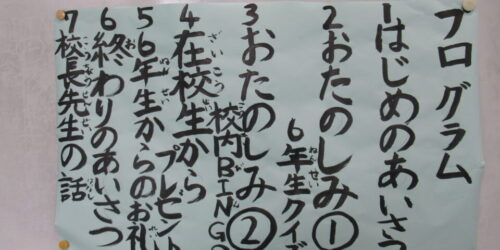 プログラム
1はじめのあいさつ
2おたのしみ①
6年生クイズ
3おたのしみ②
校内BINGO
4在校生から
プレゼント
56年生からのお礼
6終わりのあいさつ
7校長先生の話